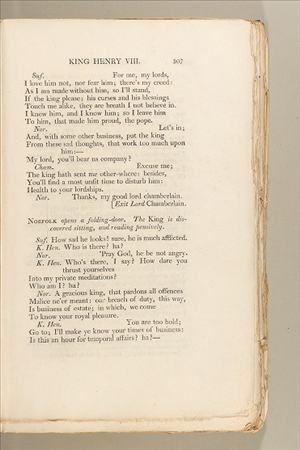 KING HENRY VIII. 307
Suf. For me, my lords,
I love him not, nor fear him; there's my creed:
As I am made without him, so I'll stand,
If the king please; his curses and his blessings
Touch me alike, they are breath I not believe in.
I knew him, and I know him; so I leave him
To him, that made him proud, the pope.
Nor. Let's in;
And, with some other business, put the king
From these sad thoughts, that work too much upon
him:—
My lord, you'll bear us company?
Cham. Excuse me;
The king hath sent me other-where: besides,
You'll find a most unfit time to disturb him:
Health to your lordships.
Nor. Thanks, my good lord chamberlain.
[Exit Lord Chamberlain.
NORFOLK opens a folding-door. The King is dis-
covered sitting, and reading pensively.
Suf. How sad he looks! sure, he is much afflicted.
K. Hen. Who is there? ha?
Nor. 'Pray God, he be not angry.
K. Hen. Who's there, I say? How dare you
thrust yourselves
Into my private meditations?
Who am I? ha?
Nor. A gracious king, that pardons all offences
Malice ne'er meant: our breach of duty, this way,
Is business of estate; in which, we come
To know your royal pleasure.
K. Hen. You are too bold;
Go to; I'll make ye know your times of business:
Is this an hour for temporal affairs? ha?—